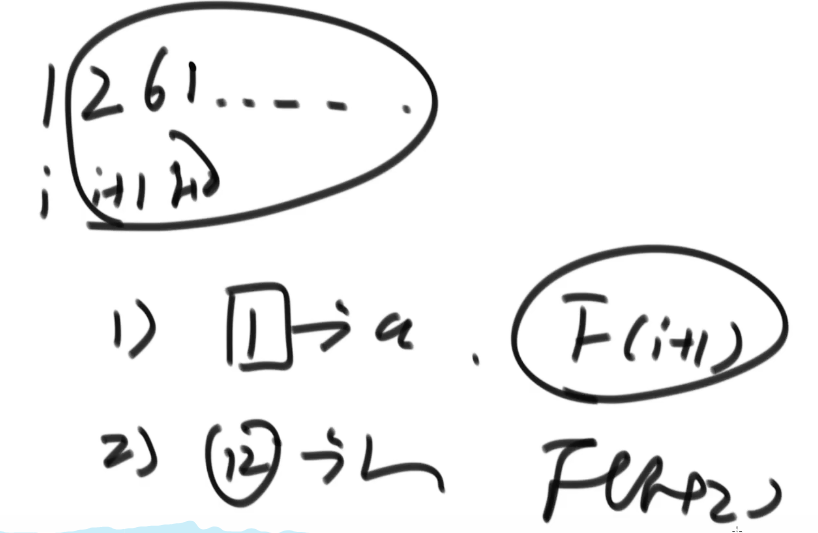 1 2 6 1 . . - - - .
i i+1 i+2
1) 1 → a . F(i+1)
2) 12 → L F(i+2)